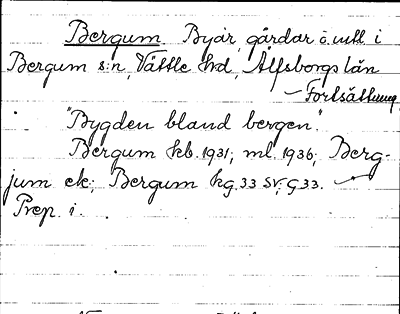 Bergum Byar, gårdar o. utl. i
Bergum s:n, Vättle hd, Älfsborgs län
– Fortsättning
"Bygden bland bergen".
Bergum kb. 1931; ml. 1936; Berg-
jum ek.; Bergum kg. 33 SV; G33. –
Prep. i.